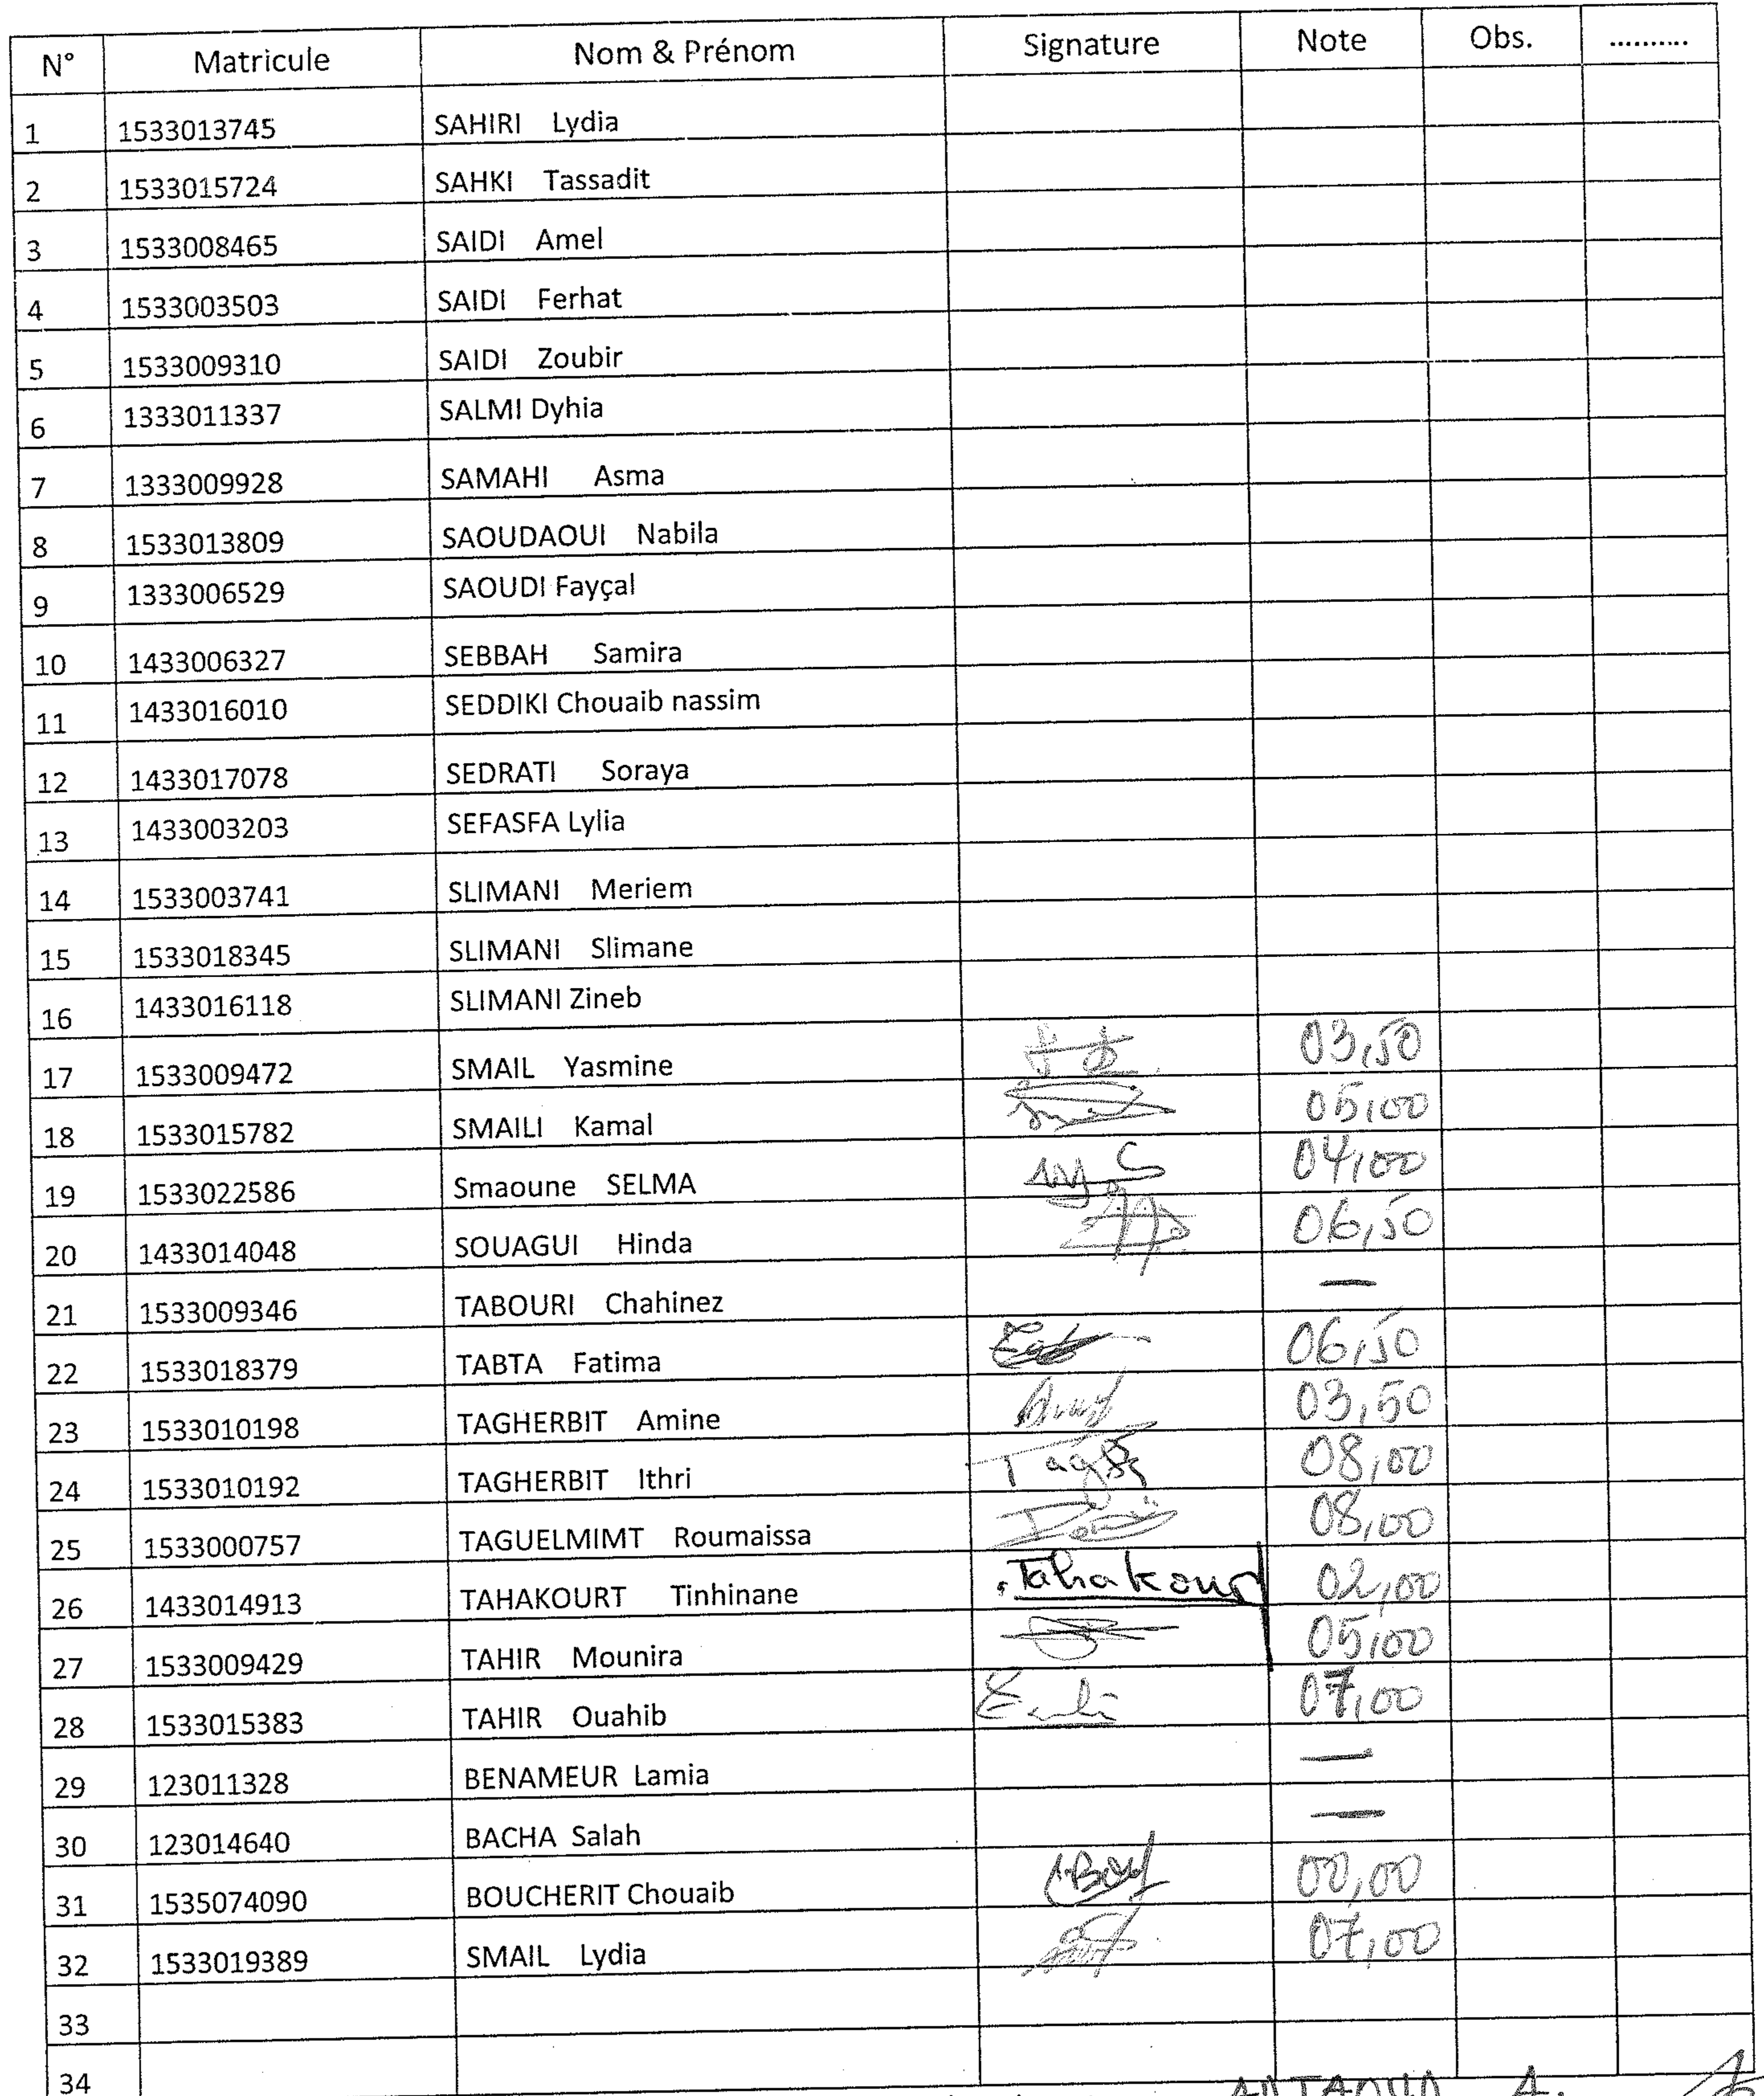 N° Matricule Nom & Prénom Signature Note Obs. ..........
1 1533013745 SAHIRI Lydia
2 1533015724 SAHKI Tassadit
3 1533008465 SAIDI Amel
4 1533003503 SAIDI Ferhat
5 1533009310 SAIDI Zoubir
6 1333011337 SALMI Dyhia
7 1333009928 SAMAHI Asma
8 1533013809 SAOUDAOUI Nabila
9 1333006529 SAOUDI Fayçal
10 1433006327 SEBBAH Samira
11 1433016010 SEDDIKI Chouaib nassim
12 1433017078 SEDRATI Soraya
13 1433003203 SEFASFA Lylia
14 1533003741 SLIMANI Meriem
15 1533018345 SLIMANI Slimane
16 1433016118 SLIMANI Zineb
17 1533009472 SMAIL Yasmine 03,50
18 1533015782 SMAILI Kamal 05,00
19 1533022586 Smaoune SELMA 04,00
20 1433014048 SOUAGUI Hinda 06,50
21 1533009346 TABOURI Chahinez —
22 1533018379 TABTA Fatima 06,50
23 1533010198 TAGHERBIT Amine 03,50
24 1533010192 TAGHERBIT Ithri 08,00
25 1533000757 TAGUELMIMT Roumaissa 08,00
26 1433014913 TAHAKOURT Tinhinane Tahakourt 02,00
27 1533009429 TAHIR Mounira 05,00
28 1533015383 TAHIR Ouahib 07,00
29 123011328 BENAMEUR Lamia —
30 123014640 BACHA Salah —
31 1535074090 BOUCHERIT Chouaib 00,00
32 1533019389 SMAIL Lydia 07,00
33
34